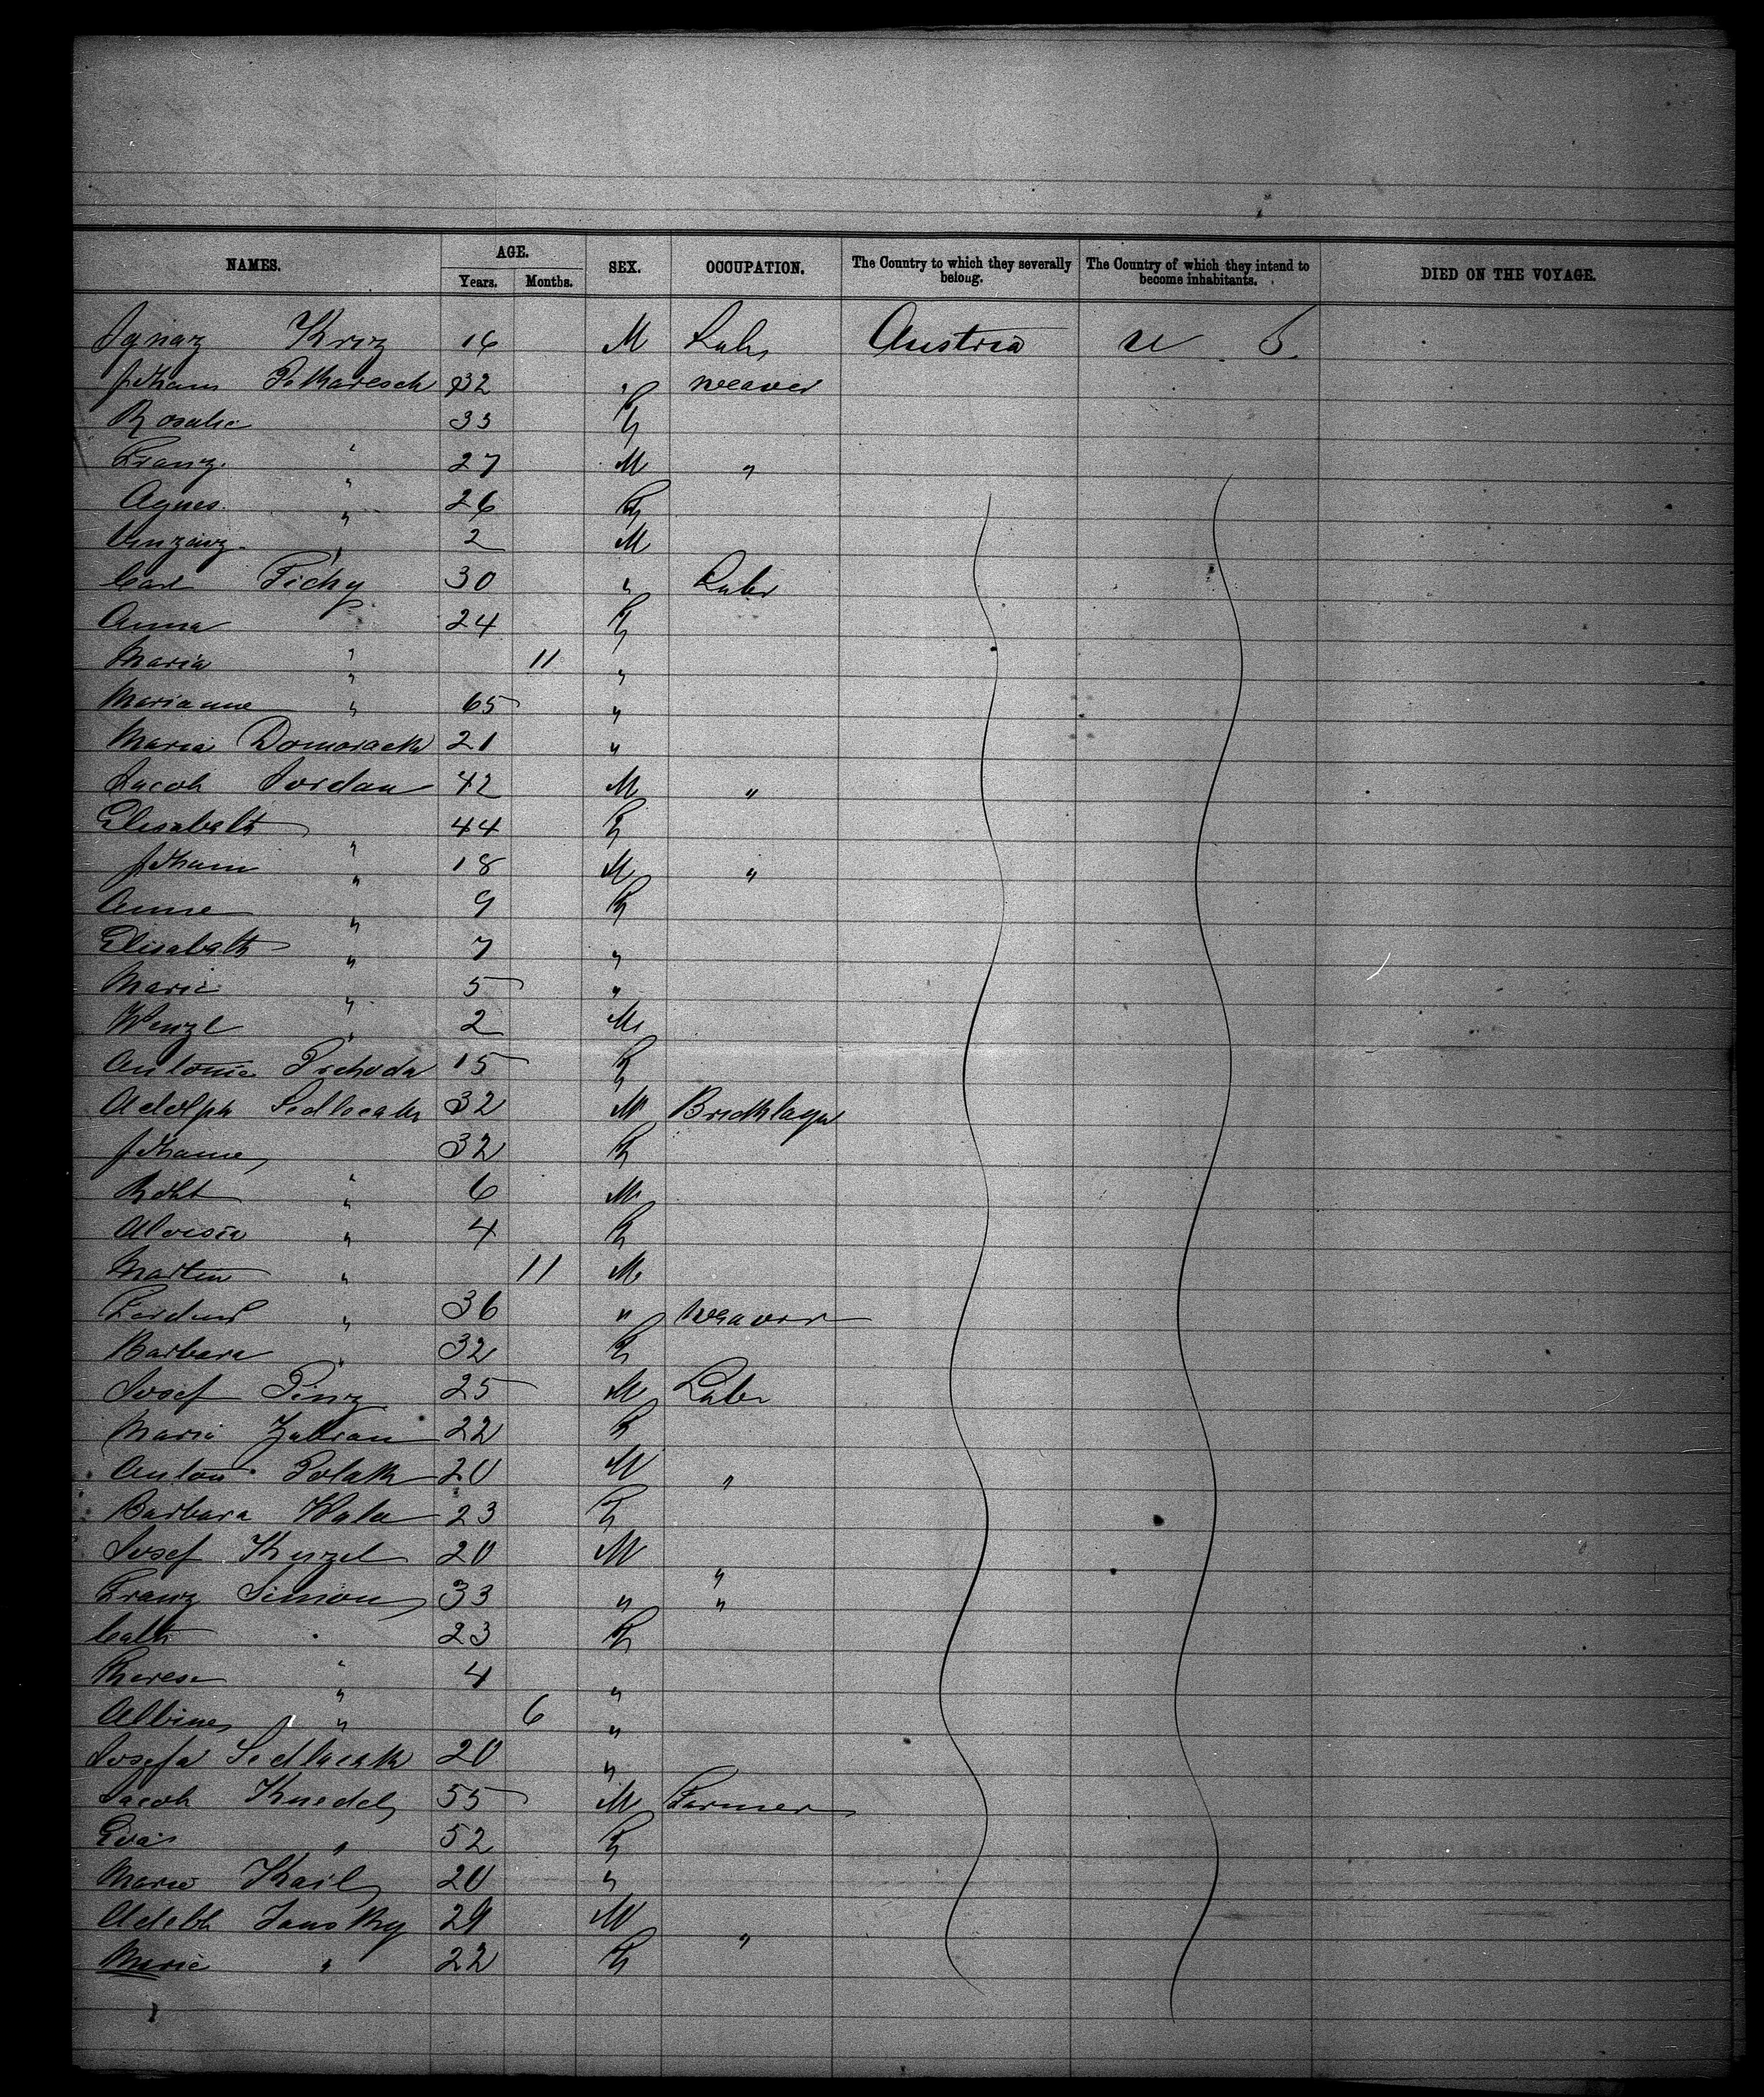 NAMES. AGE. Years. Months. SEX. OCCUPATION. The Country to which they severally belong. The Country of which they intend to become inhabitants. DIED ON THE VOYAGE.
Ignaz Kriz 16 M Labr Austria U S.
Johann Pekaresch 32 " weaver
Rosalie " 33 F
Franz " 27 M "
Agnes " 26 F
Vinzenz " 2 M
Carl Tichy 30 " Labr
Anna " 24 F
Maria " 11 "
Marianne " 65 "
Maria Domorack 21 "
Jacob Jordan 42 M "
Elisabeth " 44 F
Johann " 18 M "
Anna " 9 F
Elisabeth " 7 "
Marie " 5 "
Wenzl " 2 M
Antonie 15 F
Adolph Sedlacek 32 M Bricklayer
Johanne " 32 F
Robt " 6 M
Aloisia " 4 F
Martin " 11 M
Ferdind " 36 " weaver
Barbara " 32 F
Josef Pinz 25 M Labr
Maria 22 F
Anton Polak 20 M "
Barbara 23 F
Josef 20 M "
Franz Simon 33 " "
Cath " 23 F
Therese " 4 "
Albine " 6 "
Josefa Sedlacek 20 "
Jacob Knedel 55 M Farmer
Eva " 52 F
Marie Kail 20 "
Adelb Jansky 29 M "
Marie " 22 F